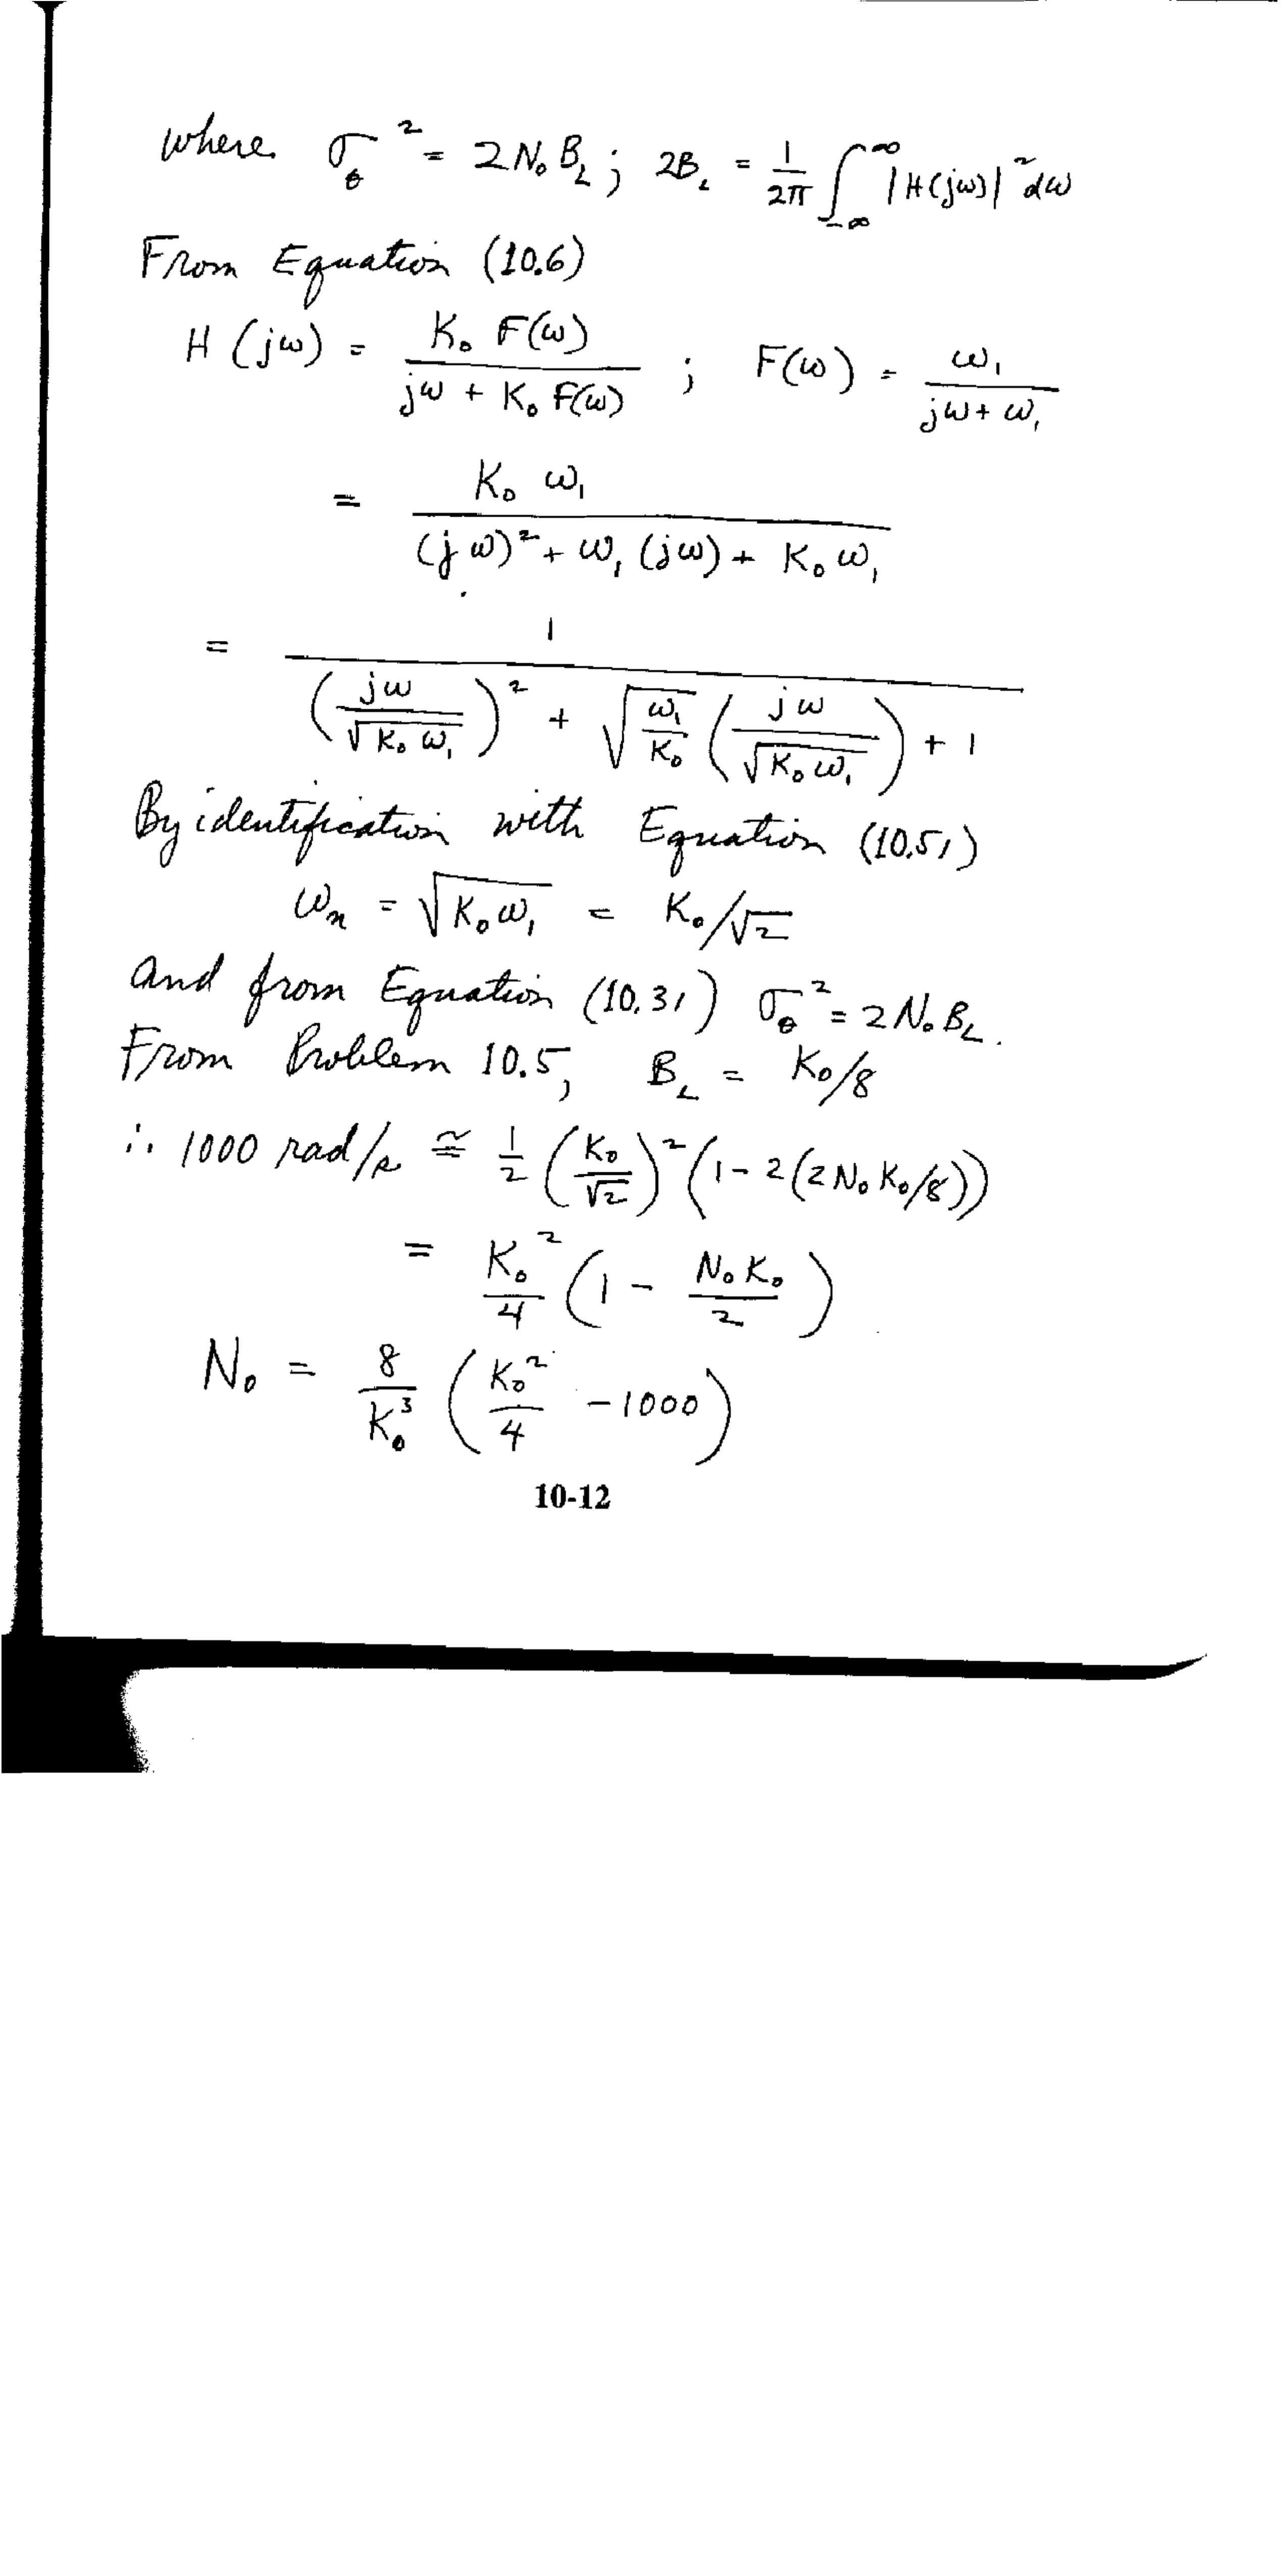 where σ_θ² = 2N₀B_L ; 2B_L = 1/2π ∫_{-∞}^{∞} |H(jω)|² dω
From Equation (10.6)
H(jω) = K₀ F(ω) / (jω + K₀ F(ω)) ; F(ω) = ω₁ / (jω + ω₁)
= K₀ ω₁ / ((jω)² + ω₁(jω) + K₀ω₁)
= 1 / ((jω/√(K₀ω₁))² + √(ω₁/K₀) (jω/√(K₀ω₁)) + 1)
By identification with Equation (10.51)
ω_n = √(K₀ω₁) = K₀/√2
and from Equation (10.31) σ_θ² = 2N₀B_L.
From Problem 10.5, B_L = K₀/8
∴ 1000 rad/s ≅ 1/2 (K₀/√2)² (1 - 2(2N₀K₀/8))
= K₀²/4 (1 - N₀K₀/2)
N₀ = 8/K₀³ (K₀²/4 - 1000)
10-12